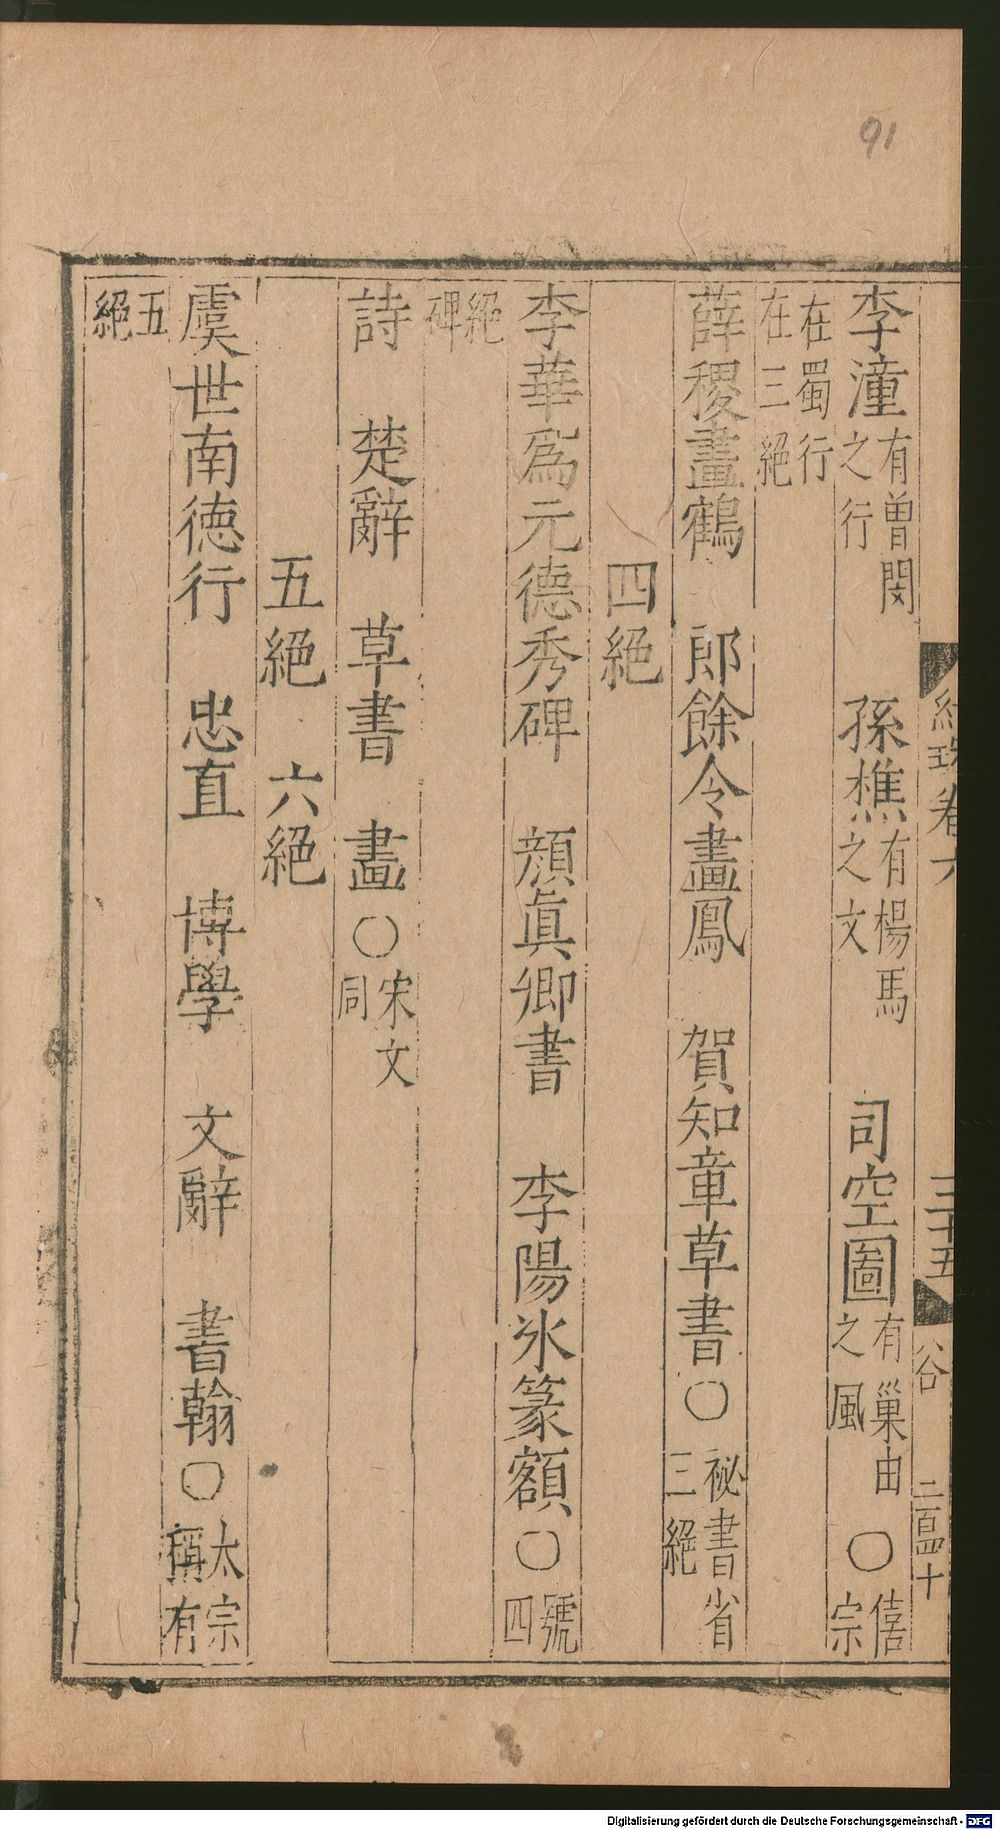 91
李潼有曾閔之行　孫樵有楊馬之文　司空圖有巢由之風○僖宗
在蜀行在三絕
薛稷畫鶴　郎餘令畫鳳　賀知章草書○祕書省三絕
四絕
李華爲元德秀碑　顔眞卿書　李陽氷篆額○號四
絕碑
詩　楚辭　草書　畫○宋文同
五絕　六絕
虞世南德行　忠直　博學　文辭　書翰○太宗稱有
五絕
卷六　三十五　谷　二百四十
Digitalisierung gefördert durch die Deutsche Forschungsgemeinschaft - DFG